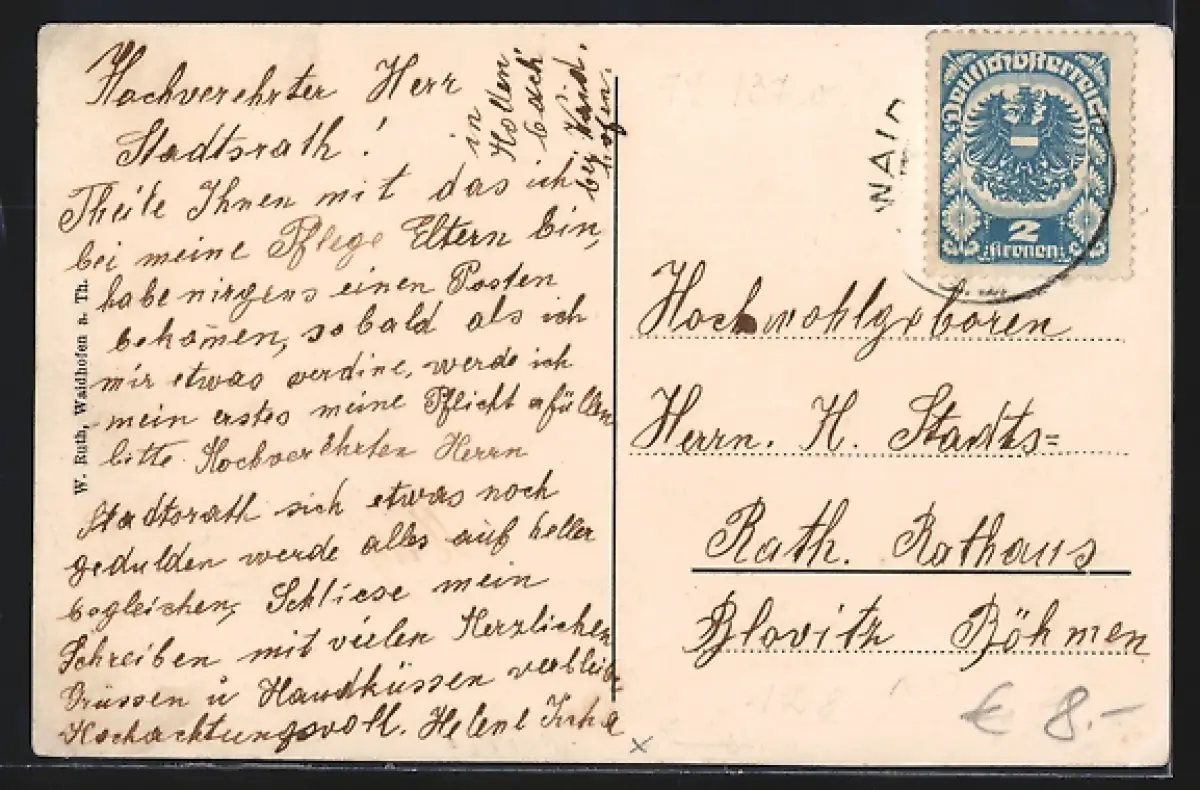 Hochverehrter Herr
Stadtsrath!
in
Hollen
bach
bei Waid.
hofen.
Theile Ihnen mit das ich
bei meine Pflege Eltern bin,
habe nirgens einen Posten
bekomen, sobald als ich
mir etwas verdine, werde ich
mein erstes meine Pflicht erfüllen
bitte Hochverehrten Herrn
Stadtsrath sich etwas noch
gedulden werde alles auf heller
begleichen, Schliese mein
Schreiben mit vielen Herzlichen
Grüssen u Handküssen verbleibe
Hochachtungsvoll. Helene
W. Ruth, Waidhofen a. Th.
Deutschösterreich
2
Kronen
WAID
Hochwohlgeboren
Herrn. H. Stadts=
Rath. Rathaus
Blovitz Böhmen
€ 8.-
x